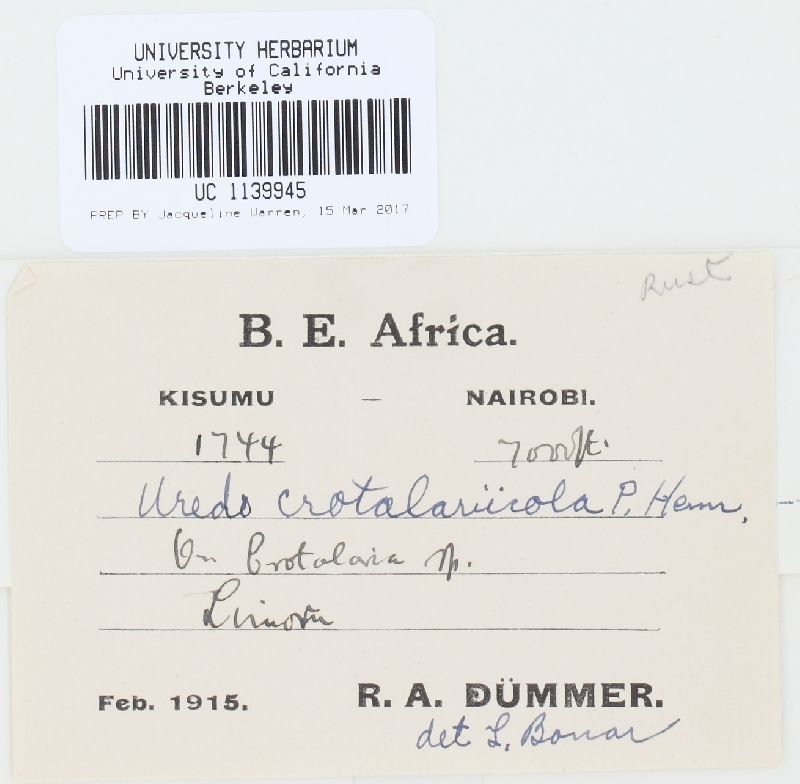 UNIVERSITY HERBARIUM
University of California
Berkeley
UC 1139945
PREP BY Jacqueline Warren, 15 Mar 2017
Rust
B. E. Africa.
KISUMU – NAIROBI.
1744 7000ft.
Uredo crotalariicola P. Henn.
On Crotalaria sp.
Limoru
Feb. 1915. R. A. DÜMMER.
det L. Bonar